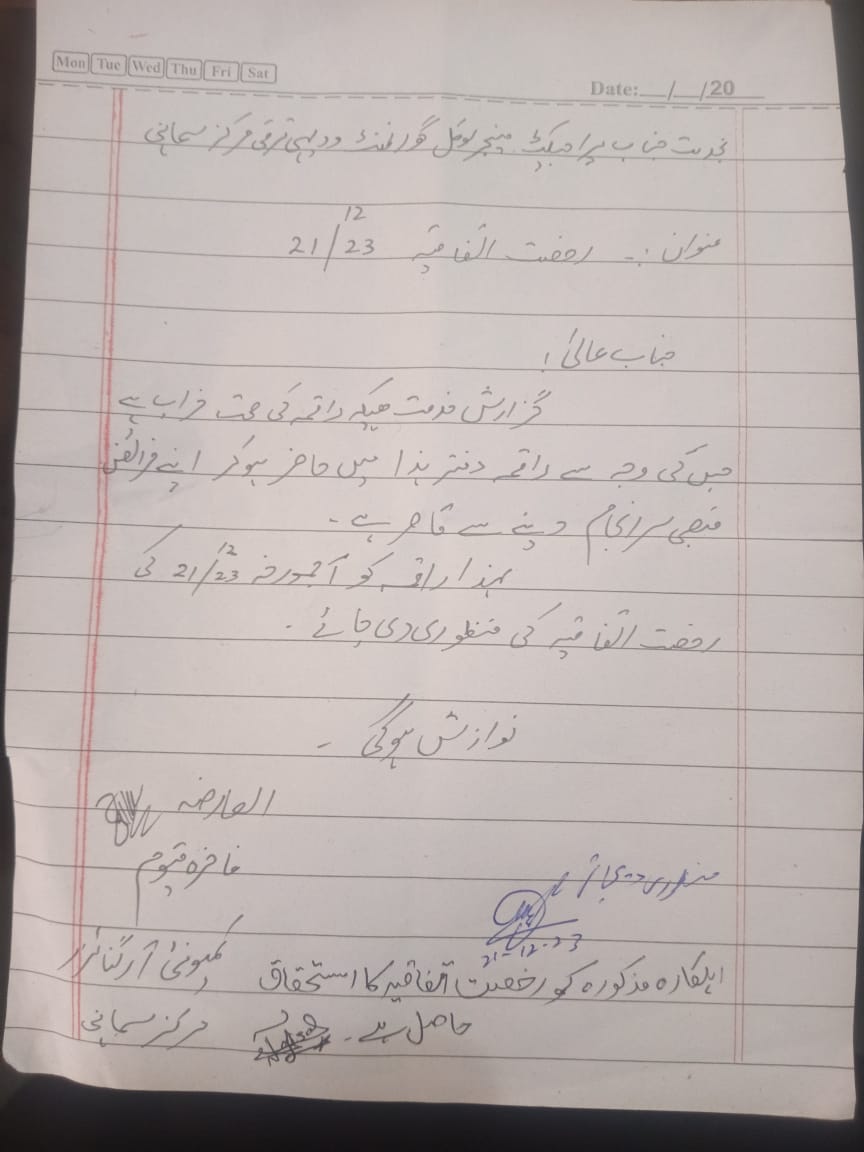 Mon Tue Wed Thu Fri Sat
Date:__/__/20__
بخدمت جناب پراجیکٹ مینجر لوکل گورنمنٹ و دیہی ترقی مرکز سماہنی
عنوان :۔ رخصت اتفاقیہ 21/12/23
جناب عالیٰ !
گزارش خدمت ہیکہ راقمہ کی صحت خراب ہے
جس کی وجہ سے راقمہ دفتر ہذا میں حاضر ہوکر اپنے فرائض
منصبی سرانجام دینے سے قاصر ہے ۔
لہذا راقمہ کو آجمورخہ 21/12/23 کی
رخصت اتفاقیہ کی منظوری دی جائے ۔
نوازش ہوگی ۔
العارضہ
فاخرہ قیوم
کمیونٹی آرگنائزر
مرکز سماہنی
منظوری دی جاتی
21-12-23
اہلکارہ مذکورہ کو رخصت اتفاقیہ کا استحقاق
حاصل ہے ۔